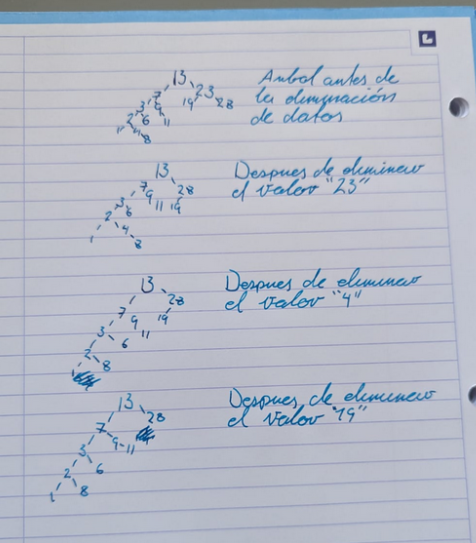 13
7 23
3 9 19 28
2 6 11
1 4
8
Arbol antes de
la eliminación
de datos
13
7 28
3 9 19
2 6 11
1 4
8
Despues de eliminar
el valor "23"
13
7 28
3 9 19
2 6 11
8
Despues de eliminar
el valor "4"
13
7 28
3 9
2 6 11
1 8
Despues de eliminar
el valor "19"